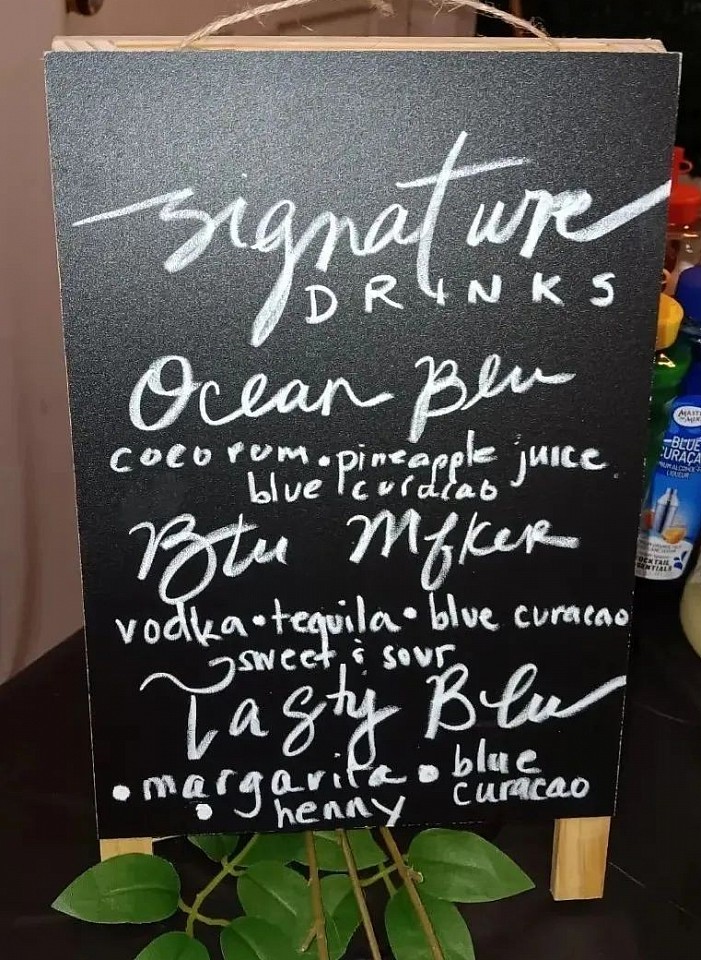 signature
DRINKS
Ocean Blu
coco rum • pineapple juice
blue curacao
Blu Mfker
vodka • tequila • blue curacao
sweet & sour
Tasty Blu
• margarita • blue
curacao
• henny
MASTER
of MIX
BLUE
CURAÇA
LIQUEUR